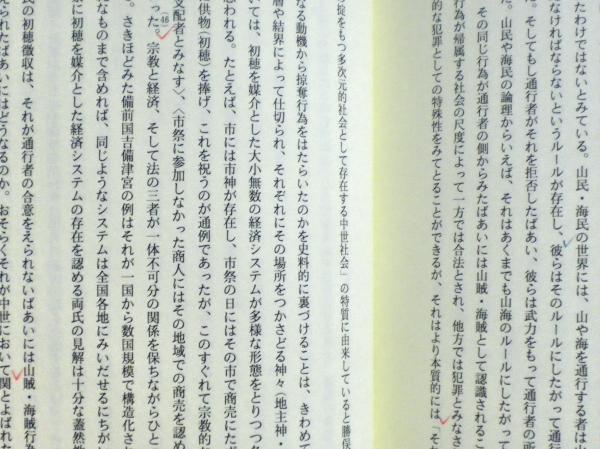 たわけではないとみている。山民・海民の世界には、山や海を通行する者は山
なければならないというルールが存在し、彼らはそのルールにしたがって通行
た。そしてもし通行者がそれを拒否したばあい、彼らは武力をもって通行者の所
た。山民や海民の論理からいえば、それはあくまでも山海のルールにしたがって
その同じ行為が通行者の側からみたばあいには山賊・海賊として認識されるこ
行為が帰属する社会の尺度によって一方では合法とされ、他方では犯罪とみなさ
的な犯罪としての特殊性をみてとることができるが、それはより本質的には、「そ
掟をもつ多次元的社会として存在する中世社会」の特質に由来していると勝俣
なる動機から掠奪行為をはたらいたのかを史料的に裏づけることは、きわめて
層や結界によって仕切られ、それぞれにその場所をつかさどる神々(地主神・
いては、初穂を媒介とした大小無数の経済システムが多様な形態をとりつつ各
思われる。たとえば、市には市神が存在し、市祭の日にはその市で商売にたず
供物(初穂)を捧げ、これを祝うのが通例であったが、このすぐれて宗教的な
支配者とみなす)、〈市祭に参加しなかった商人にはその地域での商売を認め
った。(46)宗教と経済、そして法の三者が一体不可分の関係を保ちながらひと
。さきほどみた備前国吉備津宮の例はそれが一国から数国規模で構造化さ
なものまで含めれば、同じようなシステムは全国各地にみいだせるにちがい
に初穂を媒介とした経済システムの存在を認める両氏の見解は十分な蓋然性
民の初穂徴収は、それが通行者の合意をえられないばあいには山賊・海賊行為
えられたばあいにはどうなるのか。おそらくそれが中世において関とよばれた